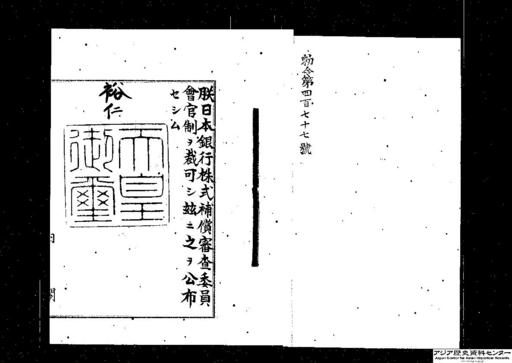 勅令第四百七十七號
朕日本銀行株式補償審査委員
會官制ヲ裁可シ玆ニ之ヲ公布
セシム
裕仁
天皇
御璽
内閣
アジア歴史資料センター
Japan Center for Asian Historical Records